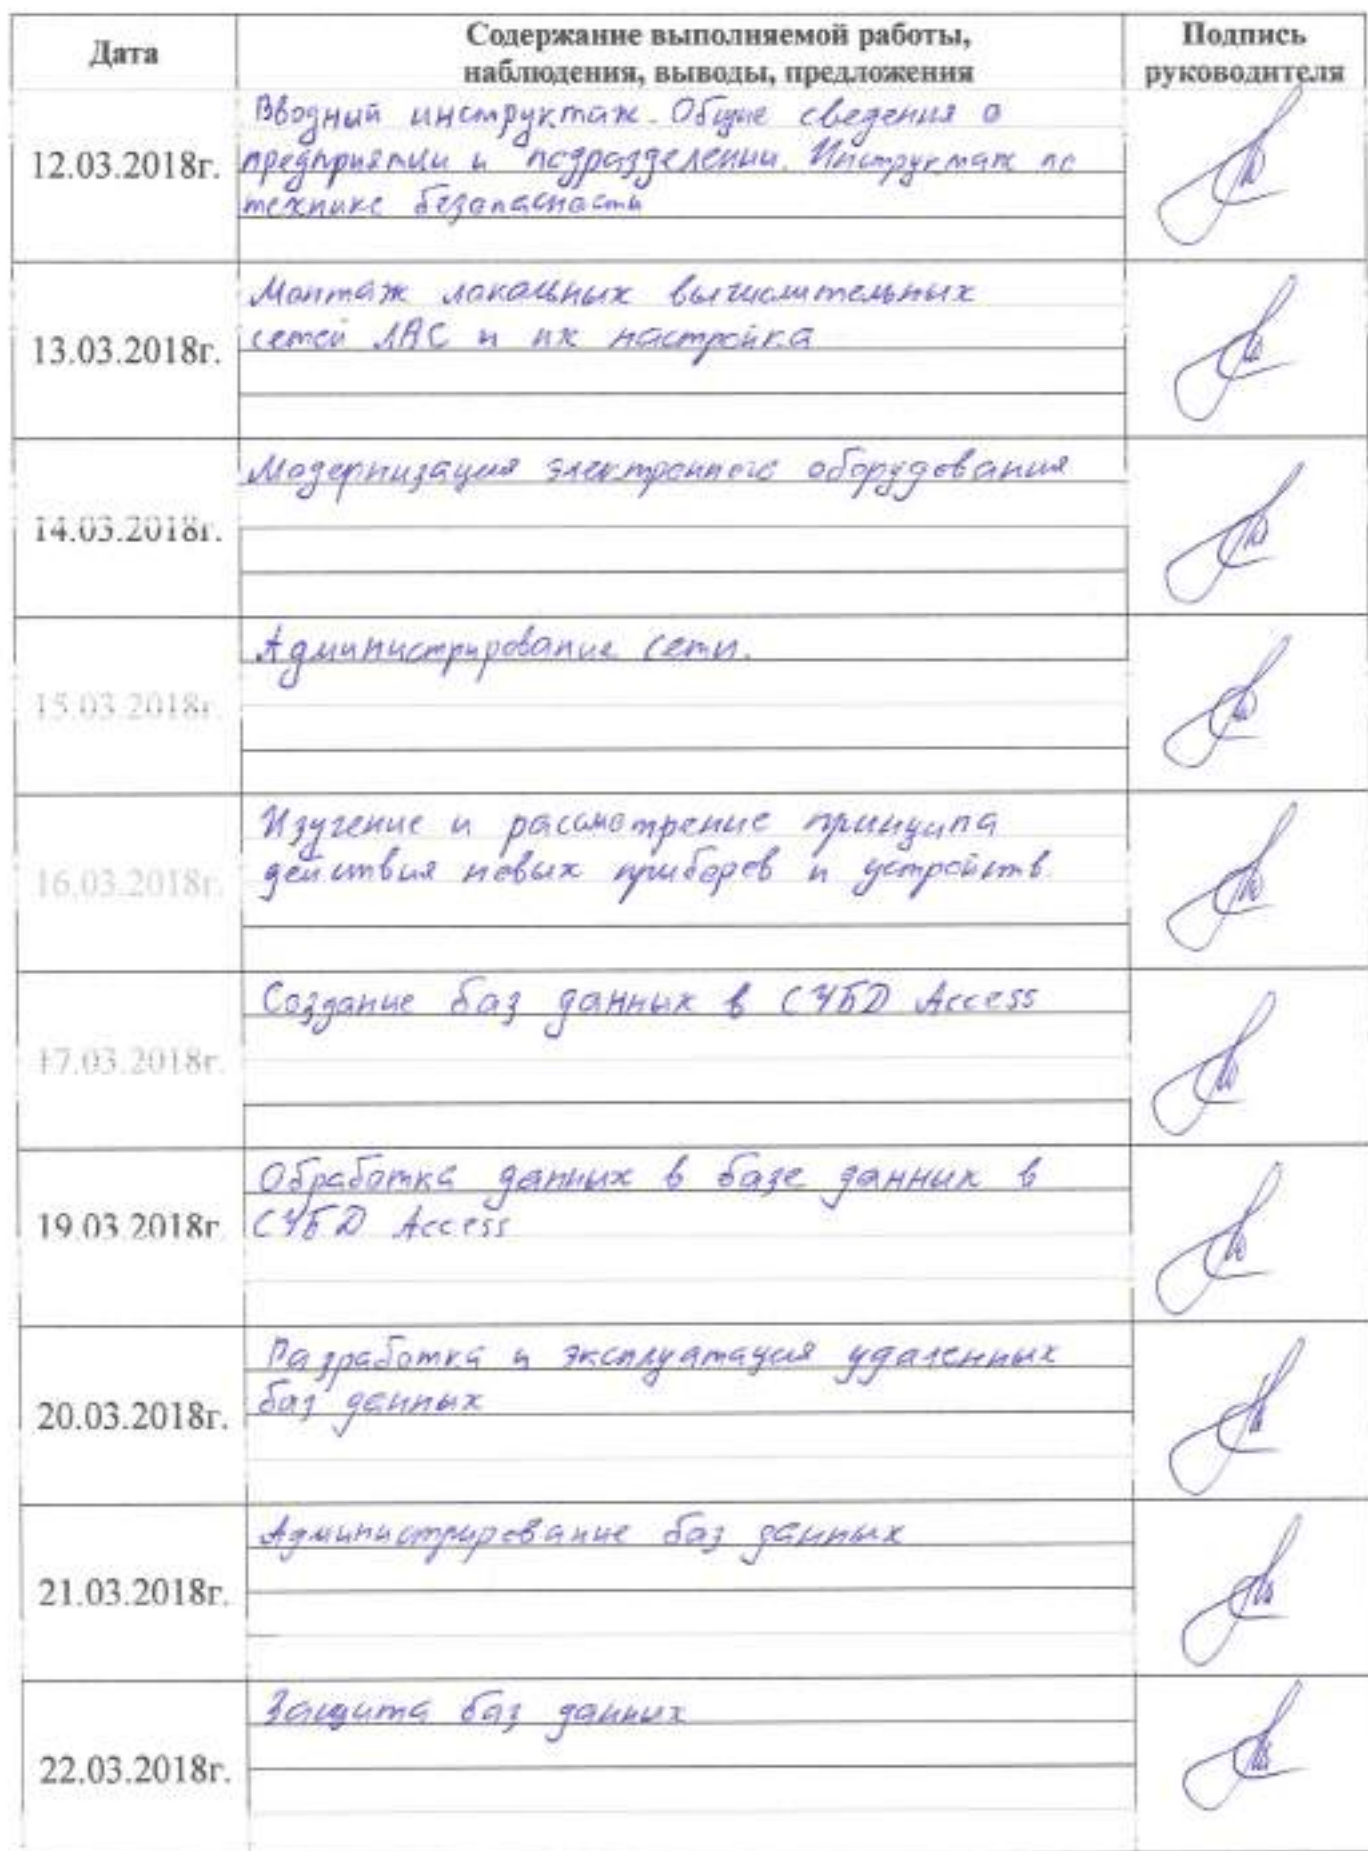 Дата
Содержание выполняемой работы,
наблюдения, выводы, предложения
Подпись
руководителя
12.03.2018г.
Вводный инструктаж. Общие сведения о
предприятии и подразделении. Инструктаж по
технике безопасности
13.03.2018г.
Монтаж локальных вычислительных
сетей ЛАС и их настройка
14.03.2018г.
Модернизация электронного оборудования
15.03.2018г.
Администрирование сети.
16.03.2018г.
Изучение и рассмотрение принципа
действия новых приборов и устройств.
17.03.2018г.
Создание баз данных в СУБД Access
19.03.2018г
Обработка данных в базе данных в
СУБД Access
20.03.2018г.
Разработка и эксплуатация удаленных
баз данных
21.03.2018г.
Администрирование баз данных
22.03.2018г.
Защита баз данных